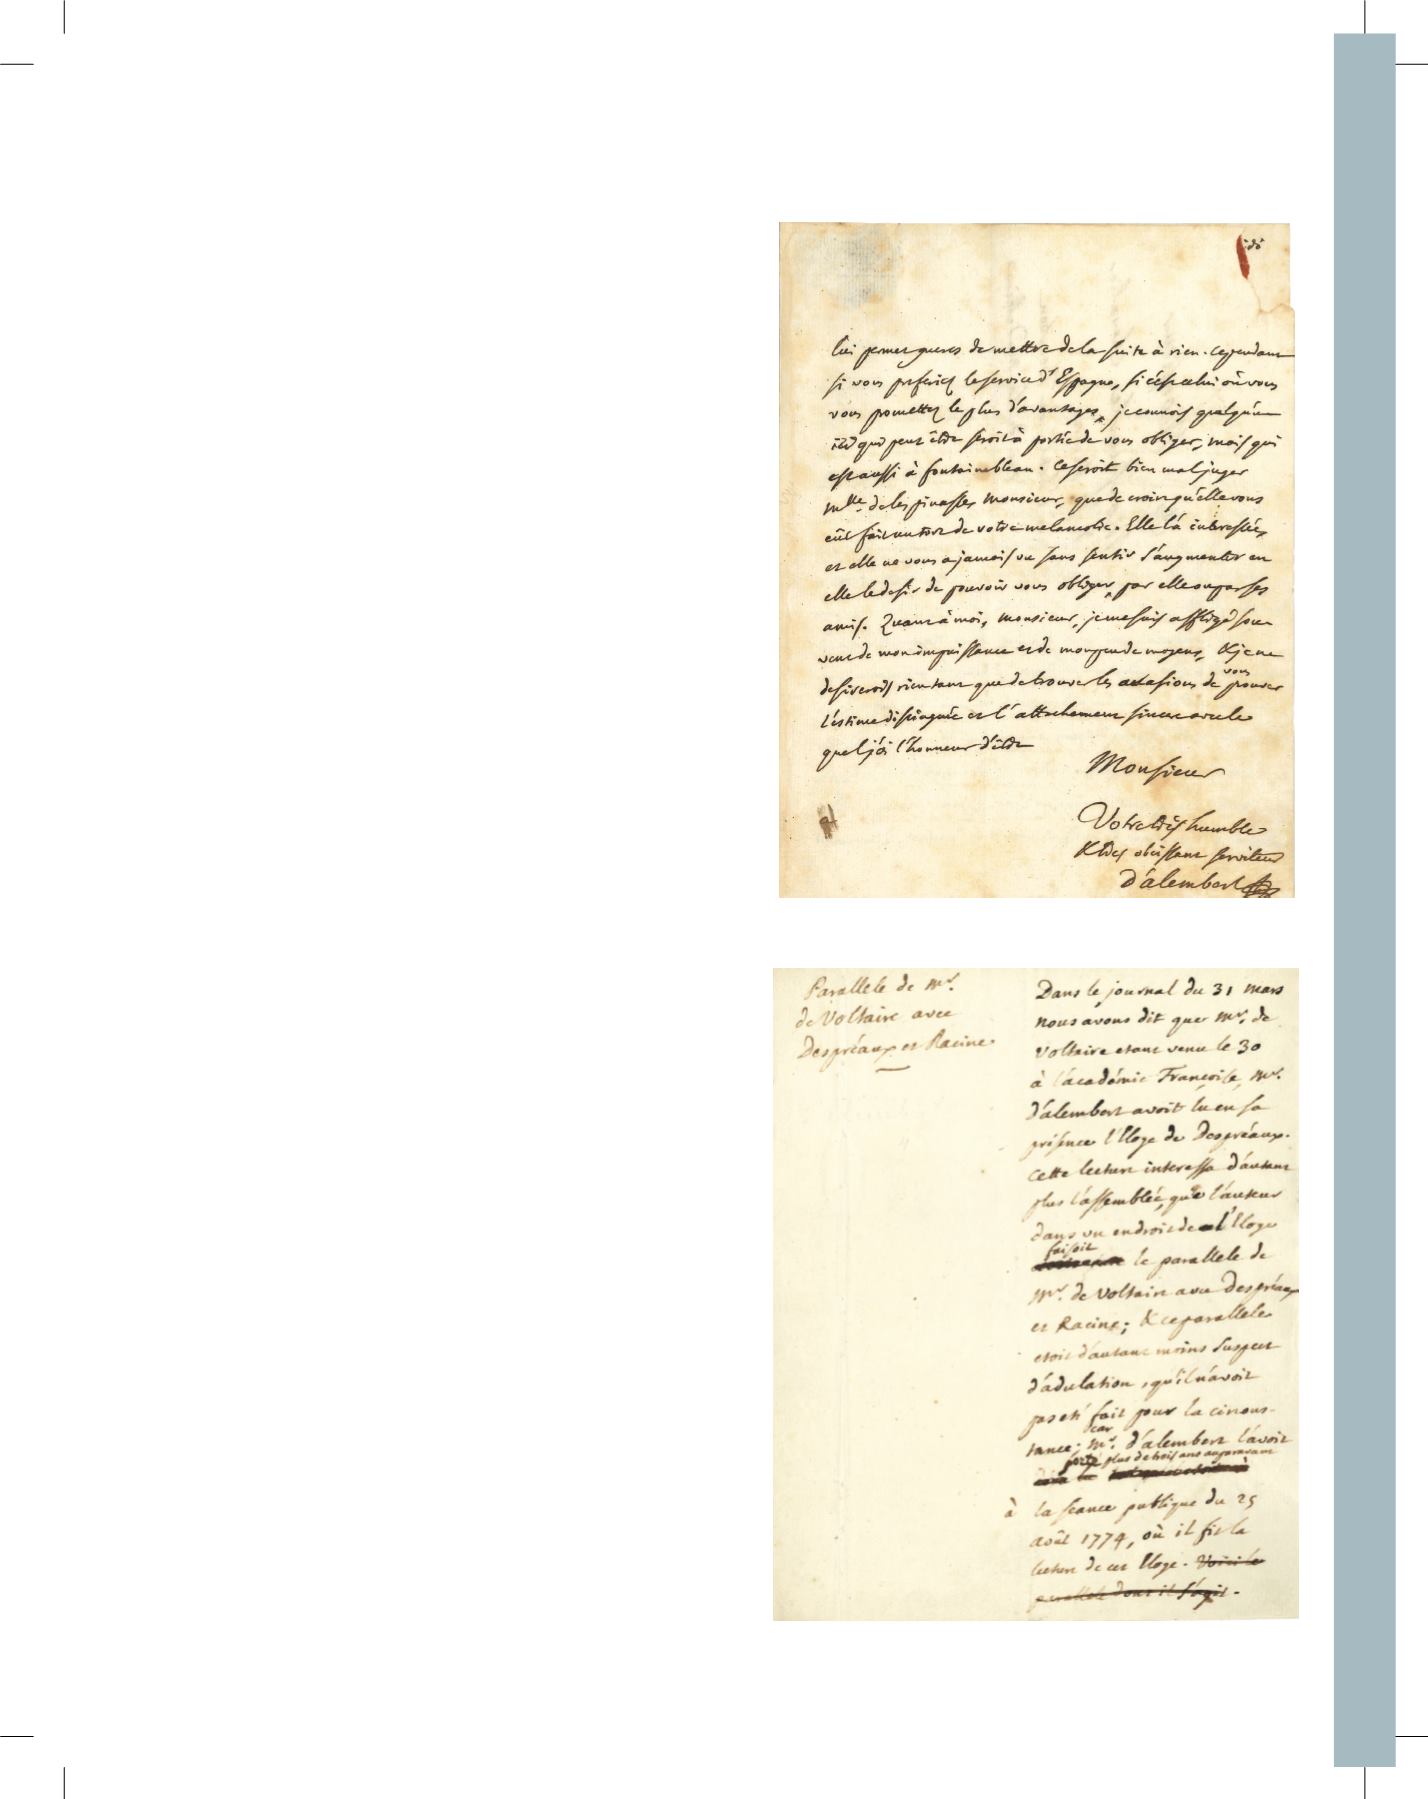 lui permet gueres de mettre de la suite à rien. cependant
si vous preferiez le service d'Espagne, si c'est celui où vous
vous promettez le plus d'avantages, je connois quelqu'un
qui peut être seroit à portée de vous obliger, mais qui
est aussi à fontainebleau. Ce seroit bien mal juger
Mlle. de lespinasse, Monsieur, que de croire qu'elle vous
eût fait un tort de votre melancolie. Elle l'a interessée,
et elle ne vous a jamais vu sans sentir s'augmenter en
elle le desir de pouvoir vous obliger, par elle ou par ses
amis. Quant à moi, monsieur, je me suis affligé sou
vent de mon impuissance et de mon peu de moyens, & je ne
desirerois rien tant que de trouver les occasions de vous prouver
l'estime distinguée et l'attachement sincere avec le
quel j'ai l'honneur d'être
Monsieur
Votre très humble
& très obéissant serviteur
d'alembert
Parallele de Mr.
de Voltaire avec
Despréaux et Racine.
Dans le journal du 31 mars
nous avons dit que Mr. de
Voltaire etant venu le 30
à l'académie Françoise, Mr.
d'alembert avoit lu en sa
présence l'Eloge de Despréaux.
cette lecture interessa d'autant
plus l'assemblée, que l'auteur
dans un endroit de l'Eloge
faisoit le parallele de
Mr. de Voltaire avec Despréaux
et Racine; & ce parallele
etoit d'autant moins suspect
d'adulation, qu'il n'avoit
pas eté fait pour la circons-
tance; car Mr. d'alembert l'avoit
plus de trois ans auparavant
à la seance publique du 25
août 1774, où il fit la
lecture de cet Eloge. Voici le
parallele dont il s'agit.